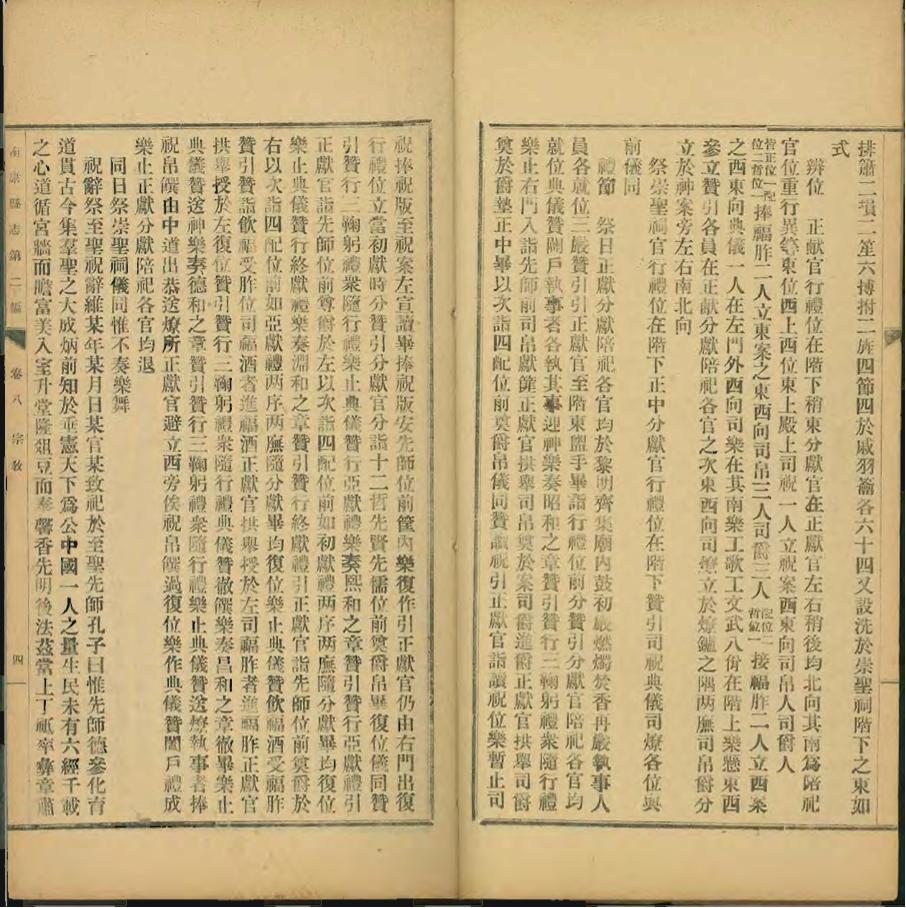 排簫二塤二笙六搏拊二旌四節四於戚羽籥各六十四又設洗於崇聖祠階下之東如
式
辨位　正献官行禮位在階下稍東分獻官在正獻官左右稍後均北向其南爲陪祀
官位重行異等東位西上西位東上殿上司祝一人立祝案西東向司帛人司爵人
皆正位一配
位二哲位一
捧福胙二人立東案之東西向司帛三人司爵三人
配位一
哲位一
接福胙二人立西案
之西東向典儀一人在左門外西向司樂在其南樂工歌工文武八佾在階上樂懸東西
參立贊引各員在正献分獻陪祀各官之次東西向司燎立於燎鑪之隅两廡司帛爵分
立於神案旁左右南北向
祭崇聖祠官行禮位在階下正中分獻官行禮位在階下贊引司祝典儀司燎各位與
前儀同
禮節　祭日正獻分獻陪祀各官均於黎明齊集廟內鼓初嚴燃燭焚香再嚴執事人
員各就位三嚴贊引引正獻官至階東盥手畢詣行禮位前分贊引分獻官陪祀各官均
就位典儀贊闢戶執事者各執其事迎神樂奏昭和之章贊引贊行三鞠躬禮衆隨行禮
樂止右門入詣先師前司帛獻篚正獻官拱舉司帛奠於案司爵進爵正獻官拱舉司爵
奠於爵墊正中畢以次詣四配位前奠爵帛儀同贊讀祝引正獻官詣讀祝位樂暫止司
祝捧祝版至祝案左宣讀畢捧祝版安先師位前篚內樂復作引正獻官仍由右門出復
行禮位立當初獻時分贊引分獻官分詣十二哲先賢先儒位前奠爵帛畢復位儀同贊
引贊行三鞠躬禮衆隨行禮樂止典儀贊行亞獻禮樂奏熙和之章贊引贊行亞獻禮引
正獻官詣先師位前尊爵於左以次詣四配位前如初獻禮两序两廡隨分獻畢均復位
樂止典儀贊行終獻禮樂奏淵和之章贊引贊行終獻禮引正獻官詣先師位前奠爵於
右以次詣四配位前如亞獻禮两序两廡隨分獻畢均復位樂止典儀贊飲福酒受福胙
贊引贊詣飲福受胙位司福酒者進福酒正獻官拱舉授於左司福胙者進福胙正獻官
拱舉授於左復位贊引贊行三鞠躬禮衆隨行禮典儀贊徹饌樂奏昌和之章徹畢樂止
典儀贊送神樂奏德和之章贊引贊行三鞠躬禮衆隨行禮樂止典儀贊送燎執事者捧
祝帛饌由中道出恭送燎所正獻官避立西旁俟祝帛饌過復位樂作典儀贊闔戶禮成
樂止正獻分獻陪祀各官均退
同日祭崇聖祠儀同惟不奏樂舞
祝辭祭至聖祝辭維某年某月日某官某致祀於至聖先師孔子曰惟先師德參化育
道貫古今集羣聖之大成炳前知於垂憲天下爲公中國一人之量生民未有六經千載
之心道循宮牆而瞻富美入室升堂隆俎豆而奉馨香先明後法茲當上丁祗率彝章肅
南康縣志第二編　卷八　宗教　四